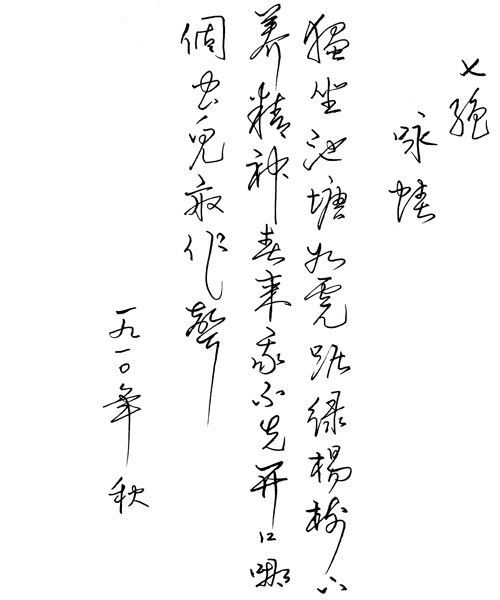 七绝
咏蛙
独坐池塘如虎踞绿杨树下
养精神春来我不先开口哪
個虫児敢作聲
一九一〇年 秋